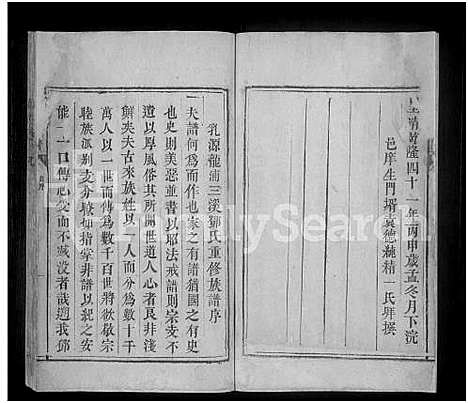 皇清乾隆四十一年丙申歲孟冬月下浣
邑庠生門壻袁德純精一氏拜撰
乳源龍浦三溪鄧氏重修族譜序
夫譜何為而作也家之有譜猶國之有史
也史則美惡並書以昭法戒譜則宗支不
遺以厚風俗其所開世道人心者良非淺
鮮矣夫古來族姓以一人而分為數十千
萬人以一世而傳為數千百世將欲敬宗
睦族派別支分瞭如指掌非譜以紀之安
能一口傳心受而不滅沒者哉適我鄧
FamilySearch